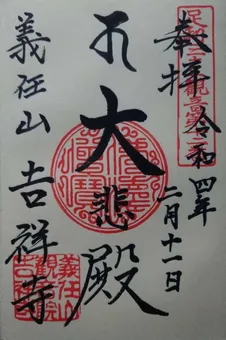 奉拝 令和四年
二月十一日
大悲殿
佛法僧寶
義任山 吉祥寺
義任山